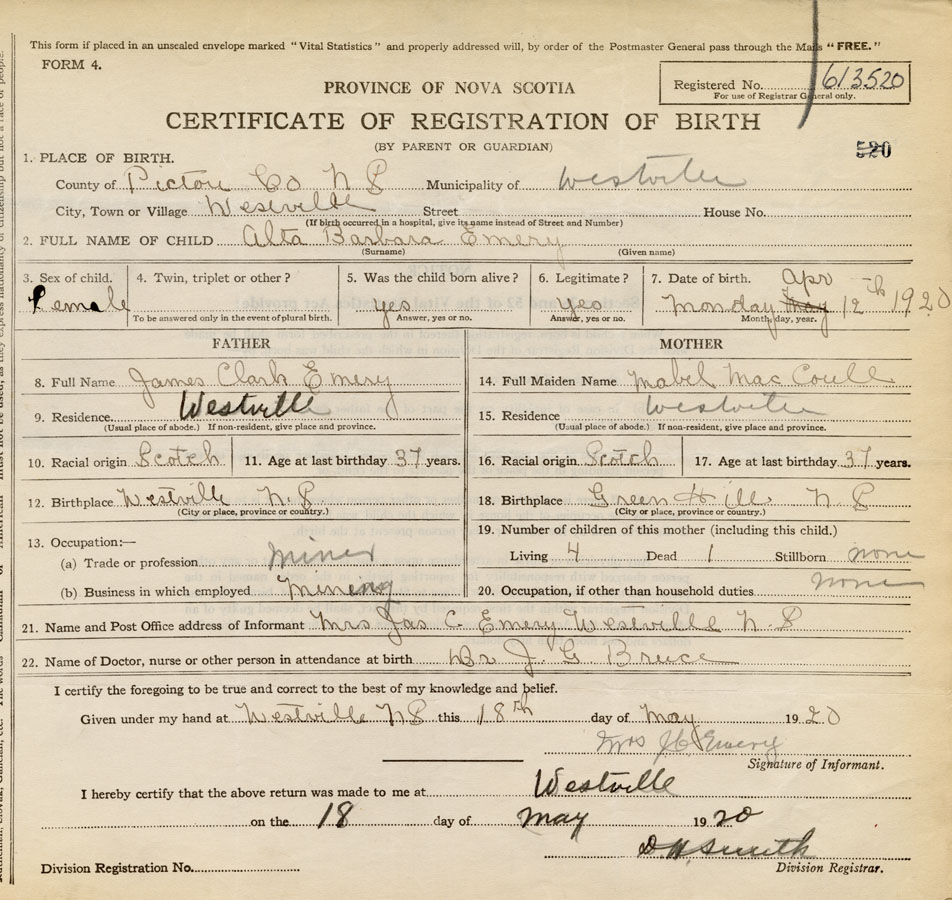 This form if placed in an unsealed envelope marked "Vital Statistics" and properly addressed will, by order of the Postmaster General pass through the Mails "FREE."
FORM 4.
PROVINCE OF NOVA SCOTIA
Registered No. 613520
For use of Registrar General only.
CERTIFICATE OF REGISTRATION OF BIRTH
(BY PARENT OR GUARDIAN)
520
1. PLACE OF BIRTH.
County of Pictou Co N S Municipality of Westville
City, Town or Village Westville Street House No.
(If birth occurred in a hospital, give its name instead of Street and Number)
2. FULL NAME OF CHILD Alta Barbara Emery
(Surname) (Given name)
3. Sex of child. 4. Twin, triplet or other? 5. Was the child born alive? 6. Legitimate? 7. Date of birth. Apr
Female yes yes Monday May 12th 1920
To be answered only in the event of plural birth. Answer, yes or no. Answer, yes or no. Month, day, year.
FATHER MOTHER
8. Full Name James Clark Emery 14. Full Maiden Name Mabel Mac Coull
9. Residence Westville 15. Residence Westville
(Usual place of abode.) If non-resident, give place and province. (Usual place of abode.) If non-resident, give place and province.
10. Racial origin Scotch 11. Age at last birthday 37 years. 16. Racial origin Scotch 17. Age at last birthday 37 years.
12. Birthplace Westville N. S 18. Birthplace Green Hill N S
(City or place, province or country.) (City or place, province or country.)
19. Number of children of this mother (including this child.)
13. Occupation:—
(a) Trade or profession miner Living 4 Dead 1 Stillborn none
(b) Business in which employed Mining 20. Occupation, if other than household duties none
21. Name and Post Office address of Informant Mrs Jas C. Emery Westville N. S
22. Name of Doctor, nurse or other person in attendance at birth Dr J. G Bruce
I certify the foregoing to be true and correct to the best of my knowledge and belief.
Given under my hand at Westville N S this 18th day of May 1920
Mrs J C Emery
Signature of Informant.
I hereby certify that the above return was made to me at Westville
on the 18 day of May 1920
D H Smith
Division Registration No. Division Registrar.